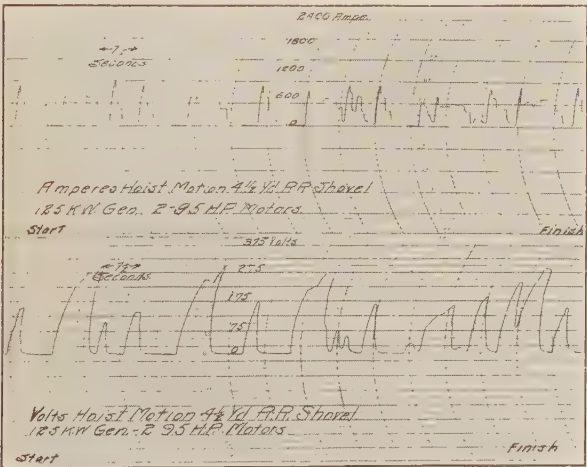 2400 Amps.
1800
1200
600
0
7½
Seconds
Amperes Hoist Motion 4½ Yd. R.R. Shovel
125 KW. Gen. 2-95 H.P. Motors.
Start
Finish
375 Volts
275
175
75
0
7½
Seconds
Volts Hoist Motion 4½ Yd. R.R. Shovel
125 KW Gen-2 95 H.P. Motors
Start
Finish